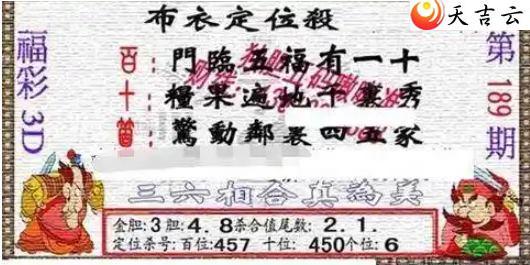 天吉云
布衣定位殺
福彩3D
第189期
百:門臨五福有一十
十:糧果遍地千裏秀
個:驚動鄰裏四五家
三六相合真為美
金胆:3胆:4.8杀合值尾数:2.1.
定位杀号:百位:457 十位:450个位:6